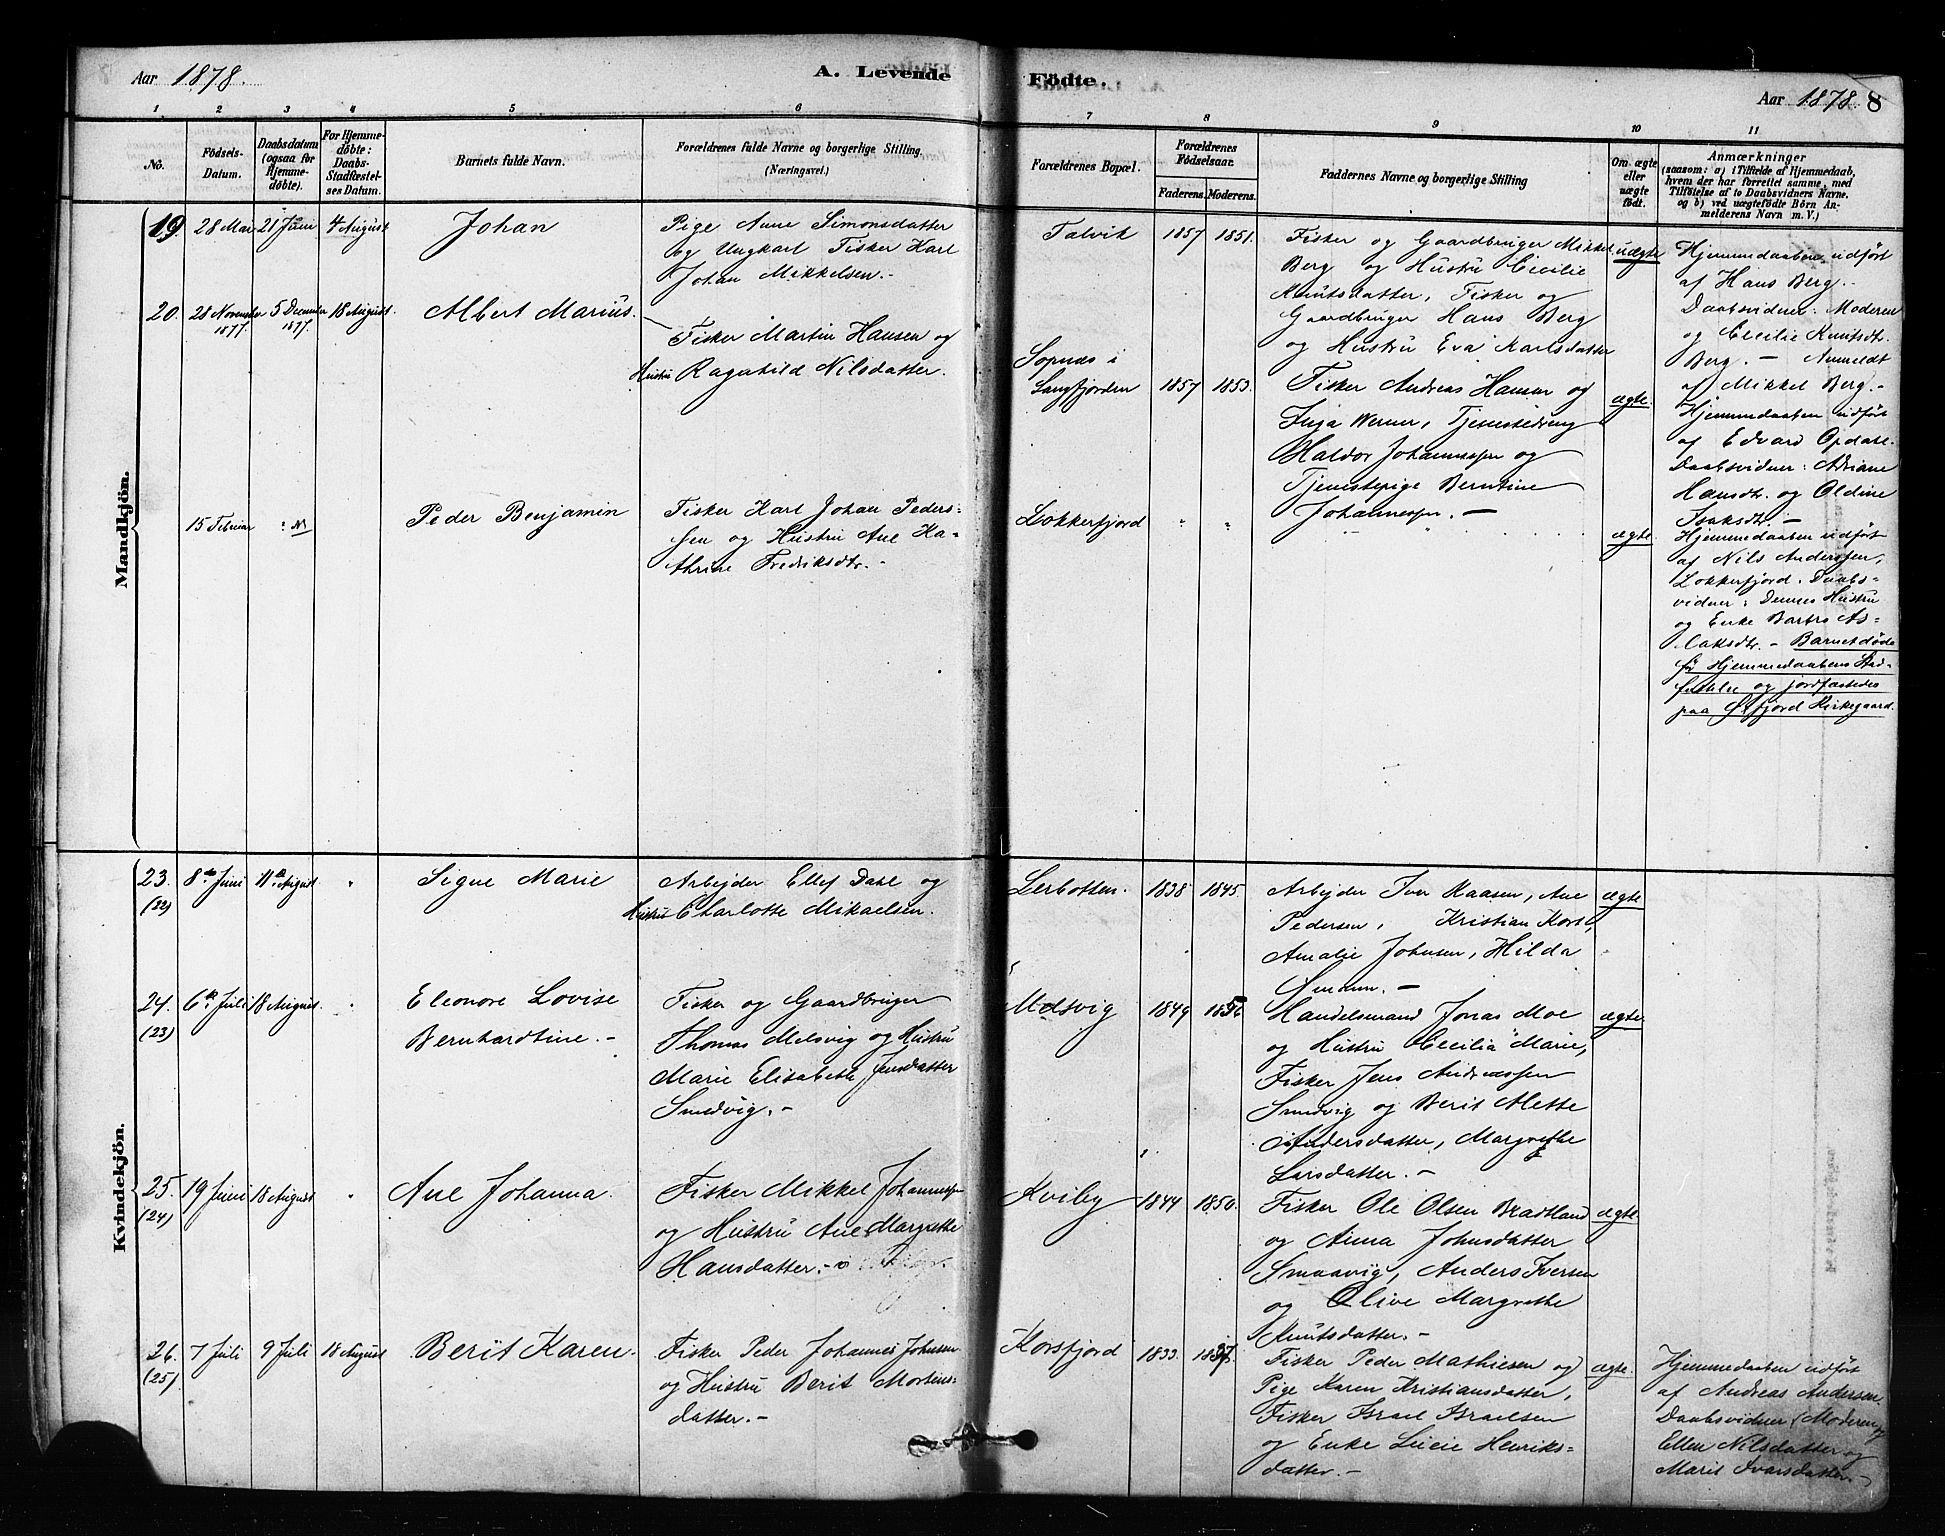 Aar 1878.
A. Levende
Födte.
Aar 1878. 8
1 2 3 4 5 6 7 8 9 10 11
No.
Födsels-Datum.
Daabsdatum (ogsaa for Hjemme-döbte).
For Hjemme-döbte: Daabs-Stadfæstel-ses Datum.
Barnets fulde Navn.
Forældrenes fulde Navne og borgerlige Stilling.
(Næringsvei.)
Forældrenes Bopæl.
Forældrenes Födselsaar.
Faderens. Moderens.
Faddernes Navne og borgerlige Stilling
Om ægte eller uægte födt.
Anmærkninger
(saasom: a) i Tilfælde af Hjemmedaab,
hvem der har forrettet samme, med
Tilföielse af to Daabsvidners Navne.
og b) ved uægtefödte Börn An-
melderens Navn m. V.)
Mandkjön.
19. 28 Mai 21 Juni 4 August
Johan
Pige Ane Simonsdatter
og Ungkarl Fisker Karl
Johan Mikkelsen.-
Talvik 1857 1851.
Fisker og Gaardbruger Mikkel
Berg og Hustru Cecilie
Knutsdatter, Fisker og
Gaardbruger Hans Berg
og Hustru Eva Karlsdatter
uægte
Hjemmedaaben udført
af Hans Berg.-
Daabsvidner: Moderen
og Cecilie Knutsdt.
Berg. - Anmeldt
af Mikkel Berg.-
20. 28 November 1877. 5 December 1877. 18 August.
Albert Marius.
Fisker Martin Hansen og
Hustru Ragnhild Nilsdatter.
Sopnæs i
Langfjorden 1857 1853.
Fisker Andreas Hansen og
Inga Werner, Tjenestedreng
Haldor Johannessen og
Tjenestepige Berntine
Johannessen. -
ægte.
Hjemmedaaben udført
af Edvard Opdahl.
Daabsvidner: Adriane
Hansdtr. og Oldine
Isaksdtr. -
15 Februar
Peder Benjamin
Fisker Karl Johan Peders-
sen og Hustru Ane Ka-
thrine Fredriksdtr. -
Lokkerfjord " "
ægte
Hjemmedaaben udført
af Nils Anderssen,
Lokkerfjord. Daabs-
vidner: Dennes Hustru
og Enke Barbro As-
laksdtr. - Barnet døde
før Hjemmedaabens Stad-
fæstelse og jordfæstedes
paa Øxfjord Kirkegaard.
Kvindekjön.
23. (22) 8de Juni 11te August. "
Signe Marie
Arbejder Ellef Dahl og
Hustru Charlotte Mikaelsen.
Lerbotten. 1838 1845.
Arbejder Iver Kaasen, Ane
Pedersen, Kristian Kors,
Amalie Johnsen, Hilda
ægte
24. (23) 6te Juli 18 August. "
Eleonore Lovise
Bernhardtine. -
Fisker og Gaardbruger
Thomas Melsvig og Hustru
Marie Elisabeth Jensdatter
Smedvig. -
Melsvig 1849
Handelsmand Jonas Moe
og Hustru Cecilia Marie,
Fisker Jens Andreassen
Smedvig og Berit Alette
Andersdatter, Margrethe
Larsdatter. -
ægte
25. (24) 19 Juni 18 August "
Ane Johanna.
Fisker Mikkel Johannessen
og Hustru Ane Margrethe
Hansdatter. -
Kviby 1844 1850.
Fisker Ole Olsen Bradtland
og Anna Johnsdatter
Smaavig, Anders Iversen
og Olive Margrethe
Knutsdatter. -
ægte
26. (25) 7 Juli 9 Juli 18 August
Berit Karen.
Fisker Peder Johannes Johnsen
og Hustru Berit Mortens-
datter. -
Korsfjord 1833. 1837.
Fisker Peder Mathiesen og
Pige Karen Kristiansdatter,
Fisker Israel Israelsen
og Enke Henriks-
datter. -
ægte.
Hjemmedaaben udført
af Andreas Andersen.
Daabsvidner (Moderen og
Ellen Nilsdatter og
Marit Ivarsdatter. -